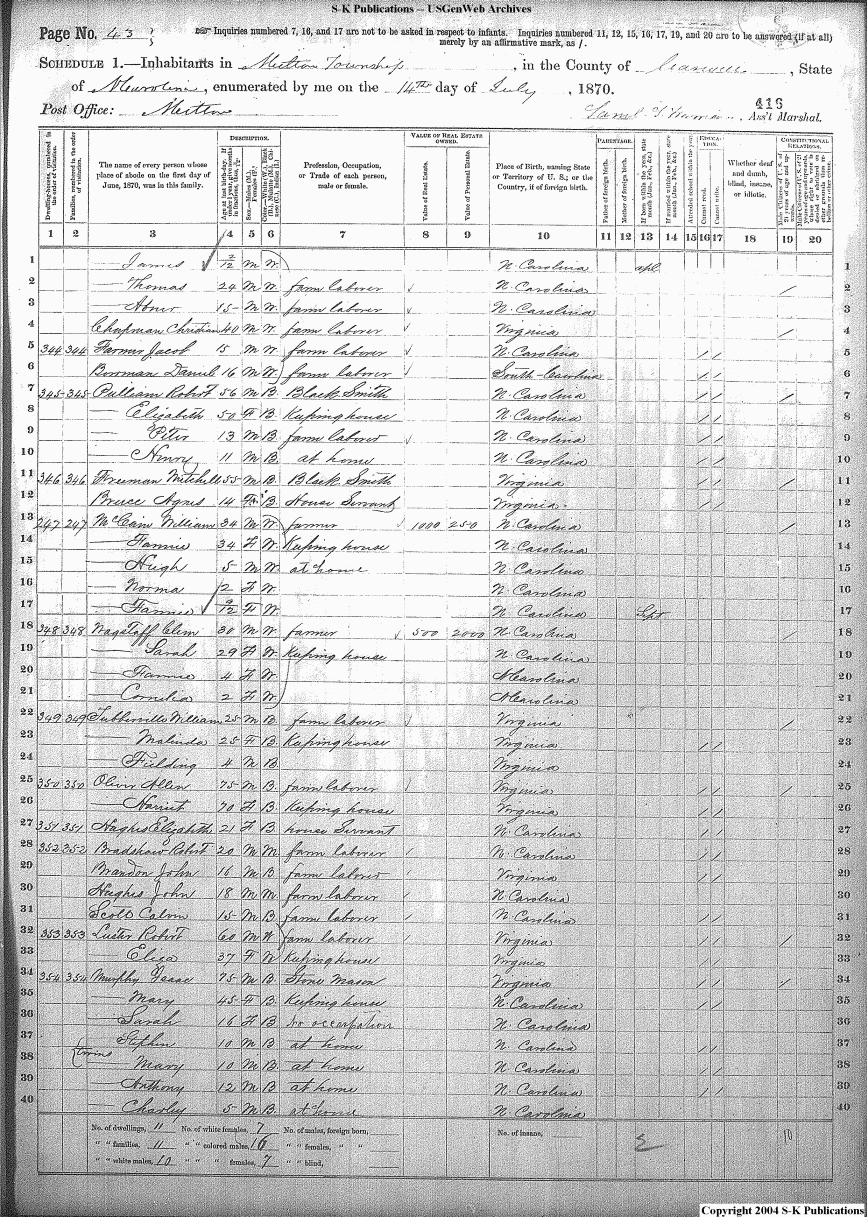 S-K Publications -- USGenWeb Archives
Page No. 43
Inquiries numbered 7, 16, and 17 are not to be asked in respect to infants. Inquiries numbered 11, 12, 15, 16, 17, 19, and 20 are to be answered (if at all) merely by an affirmative mark, as /.
SCHEDULE 1.—Inhabitants in Milton Township, in the County of Caswell, State
of N Carolina, enumerated by me on the 14th day of July, 1870.
416
Post Office: Milton
Ass't Marshal.
DESCRIPTION.
VALUE OF REAL ESTATE OWNED.
PARENTAGE.
EDUCATION.
CONSTITUTIONAL RELATIONS.
Dwelling-houses, numbered in the order of visitation.
Families, numbered in the order of visitation.
The name of every person whose place of abode on the first day of June, 1870, was in this family.
Profession, Occupation, or Trade of each person, male or female.
Value of Real Estate.
Value of Personal Estate.
Place of Birth, naming State or Territory of U. S.; or the Country, if of foreign birth.
Father of foreign birth.
Mother of foreign birth.
Whether deaf and dumb, blind, insane, or idiotic.
1 2 3 4 5 6 7 8 9 10 11 12 13 14 15 16 17 18 19 20
1 — James 2/12 M W N. Carolina apl 1
2 — Thomas 24 M W farm laborer N. Carolina / 2
3 — Abner 15 M W farm laborer N. Carolina 3
4 Chapman Christian 40 M W farm laborer Virginia / 4
5 344 344 Farmer Jacob 15 M W farm laborer N. Carolina / / 5
6 Bowman Daniel 16 M W farm laborer South Carolina / / 6
7 345 345 Pulliam Robert 56 M B Black Smith N. Carolina / / / 7
8 — Elizabeth 50 F B Keeping house N. Carolina / / 8
9 — Peter 13 M B farm laborer N. Carolina / / 9
10 — Henry 11 M B at home N. Carolina / / 10
11 346 346 Freeman Mitchell 55 M B Black Smith Virginia / / / 11
12 Bruce Agnes 14 F B House Servant Virginia / / 12
13 247 247 McCain William 34 M W farmer 1000 250 N. Carolina / 13
14 — Fannie 34 F W Keeping house N. Carolina 14
15 — Hugh 5 M W at home N. Carolina 15
16 — Norma 2 F W N. Carolina 16
17 — Fannie 9/12 F W N. Carolina Sept 17
18 348 348 Wagstaff Clem 30 M W farmer 500 2000 N. Carolina / 18
19 — Sarah 29 F W Keeping house N. Carolina 19
20 — Fannie 4 F W N Carolina 20
21 — Cornelia 2 F W N Carolina 21
22 349 349 Tubberville William 25 M B farm laborer Virginia / 22
23 — Malinda 25 F B Keeping house Virginia / / 23
24 — Fielding 4 M B Virginia 24
25 350 350 Oliver Allen 75 M B farm laborer Virginia / / / 25
26 — Harriet 70 F B Keeping house Virginia / / 26
27 351 351 Hughes Elizabeth 21 F B house Servant N. Carolina / / 27
28 352 352 Bradshaw Robert 20 M M farm laborer N. Carolina / / 28
29 Brandon John 16 M B farm laborer Virginia / / 29
30 Hughes John 18 M M farm laborer N Carolina 30
31 Scott Calvin 15 M B farm laborer N. Carolina / / 31
32 353 353 Luster Robert 60 M W farm laborer Virginia / / / 32
33 — Eliza 37 F W Keeping house Virginia / / 33
34 354 354 Murphy Isaac 75 M B Stone Mason Virginia / / / 34
35 — Mary 45 F B Keeping house N. Carolina / / 35
36 — Sarah 16 F B No occupation N. Carolina 36
37 — Stephen 10 M B at home N. Carolina / / 37
38 (twins — Mary 10 M B at home N. Carolina / / 38
39 — Anthony 12 M B at home N. Carolina / / 39
40 — Charley 5 M B at home N. Carolina 40
No. of dwellings, 11 No. of white females, 7 No. of males, foreign born, No. of insane, 10
" " families, 11 " " colored males, 16 " " females, " "
" " white males, 10 " " " females, 7 " " blind,
Copyright 2004 S-K Publications